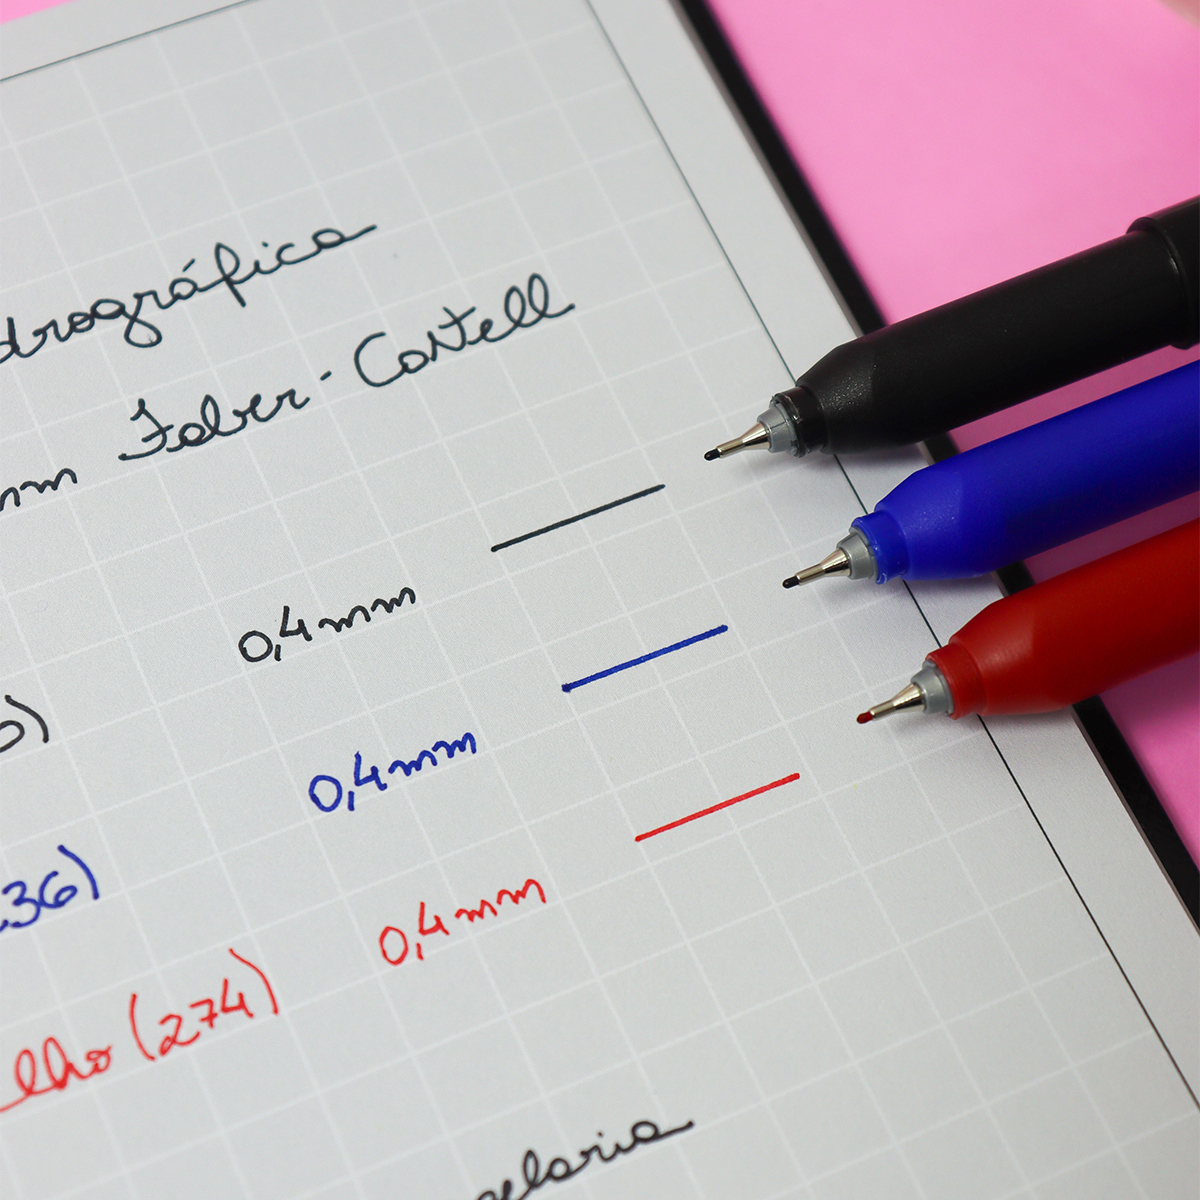 drográfica
mm Faber-Castell
0,4mm
0)
0,4mm
36)
0,4mm
elho (274)
pelaria